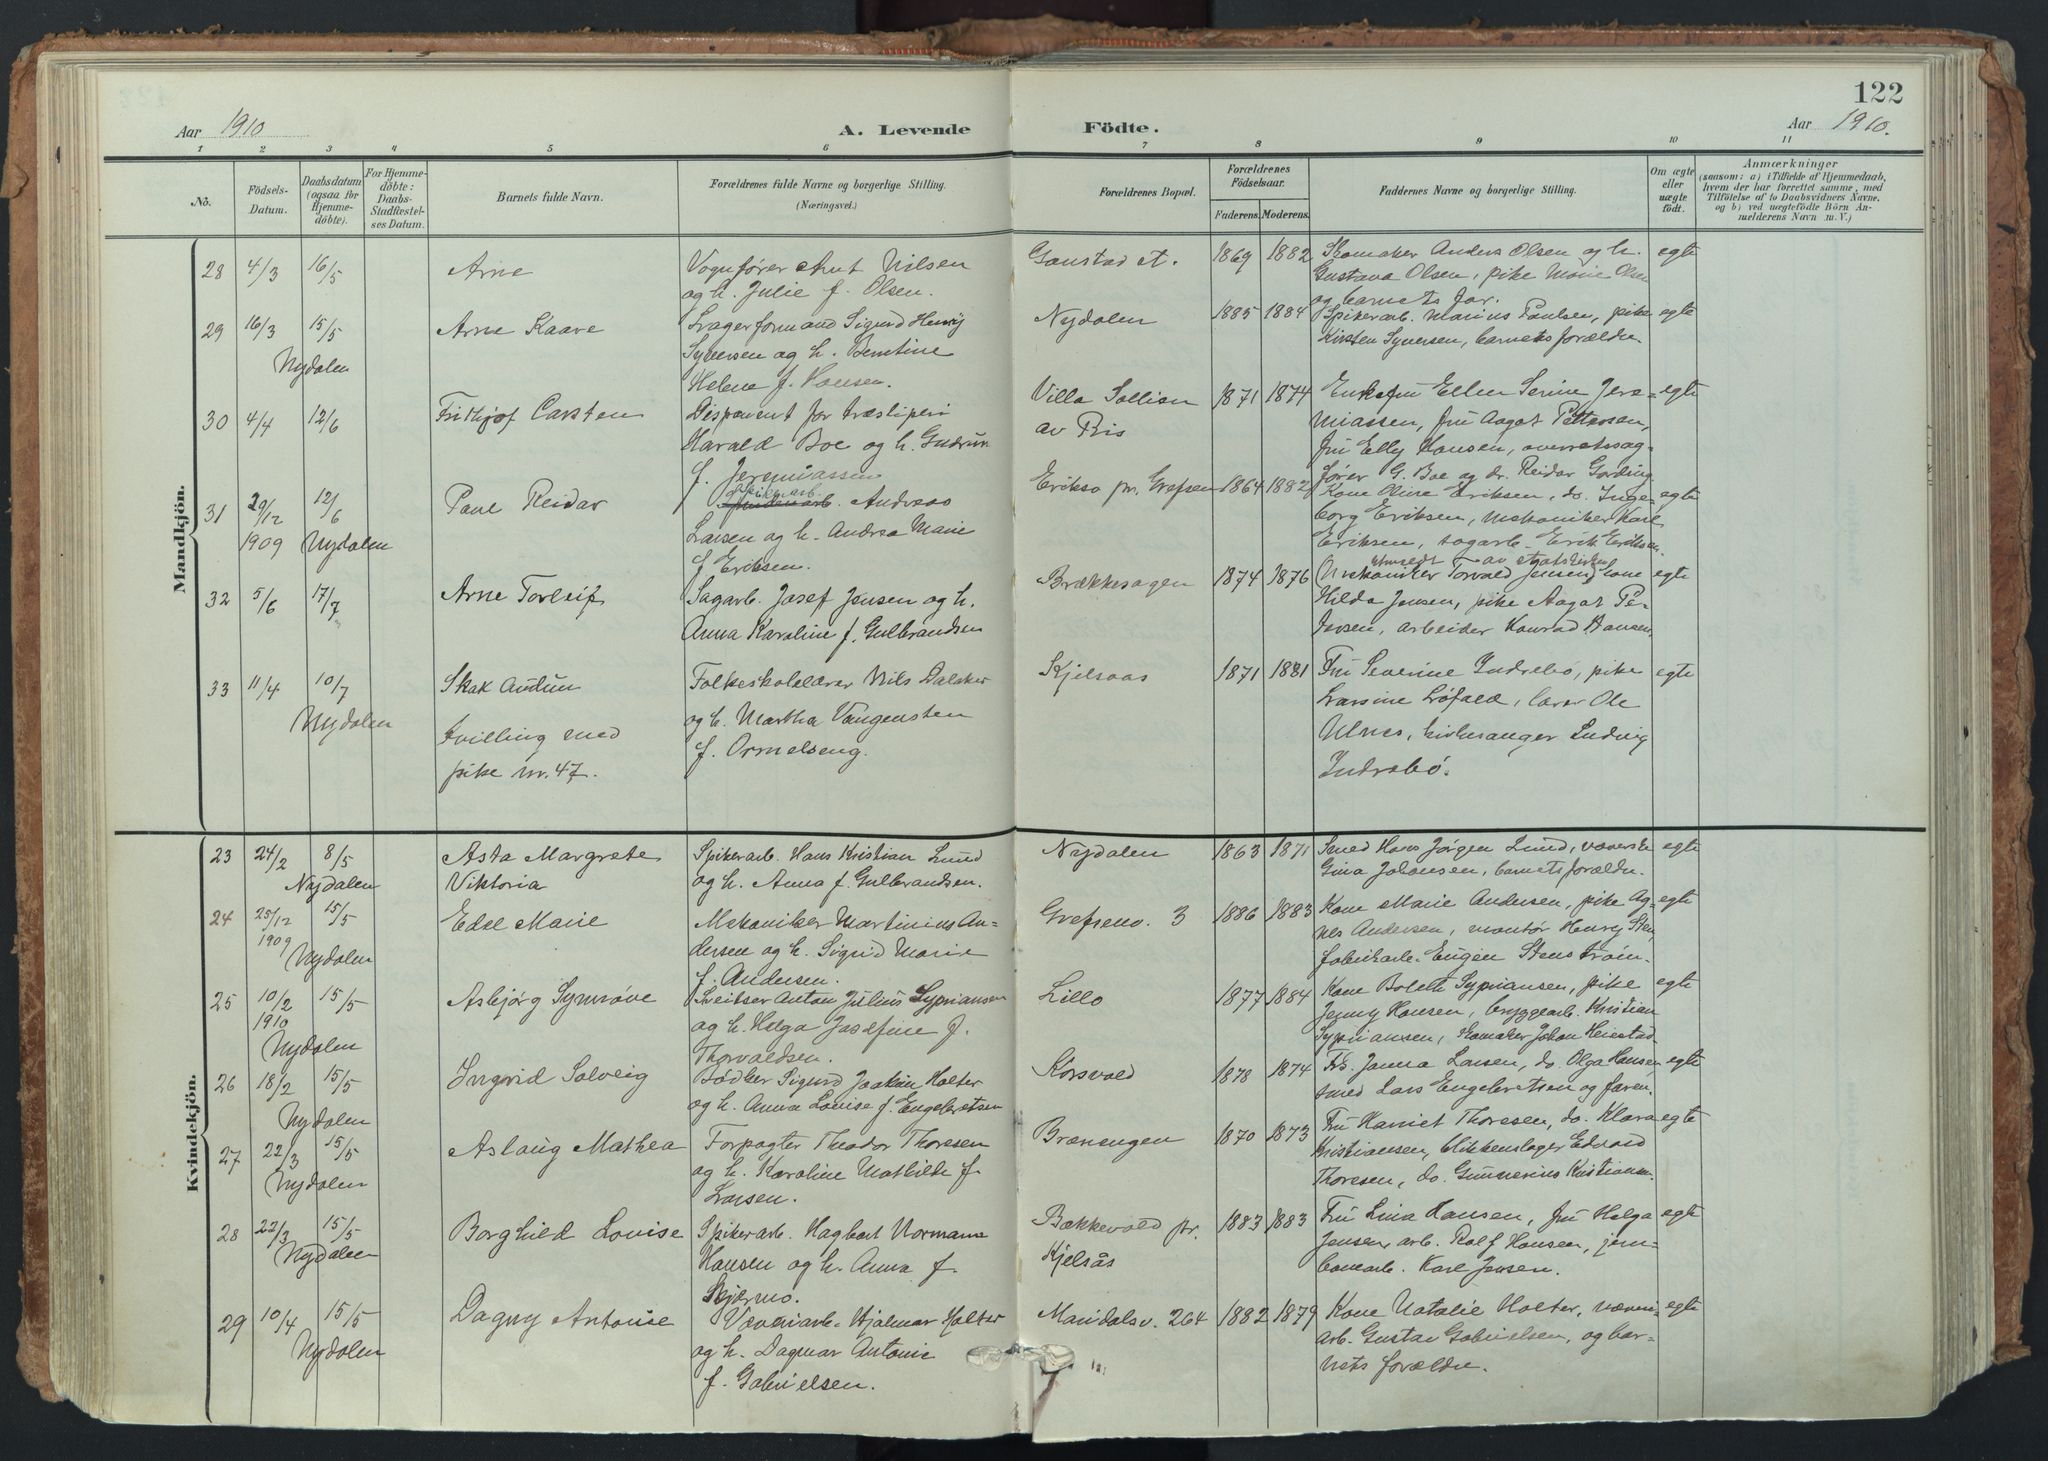 122
Aar 1910
A. Levende Födte.
Aar 1910.
1 2 3 4 5 6 7 8 9 10 11
No.
Födsels-Datum.
Daabsdatum (ogsaa for Hjemmedöbte).
For Hjemmedöbte: Daabs-Stadfæstelses Datum.
Barnets fulde Navn.
Forældrenes fulde Navne og borgerlige Stilling. (Næringsvei.)
Forældrenes Bopæl.
Forældrenes Födselsaar.
Faderens. Moderens.
Faddernes Navne og borgerlige Stilling.
Om ægte eller uægte födt.
Anmærkninger
(saasom: a) i Tilfælde af Hjemmedaab,
hvem der har forrettet samme, med
Tilföielse af to Daabsvidners Navne,
og b) ved uægtefödte Börn Anmelderens Navn m. V.)
Mandkjön.
28 4/3 16/5 Arne
Vognfører Arnt Nilsen
og h. Julie f. Olsen.
Gaustad 1869 1882
Skomaker Anders Olsen og h. egte
Gustava Olsen, pike Marie Olsen
og barnets far.
29 16/3 15/5 Arne Kaare
Nydalen
Lagerformand Sigurd Henry
Syversen og h. Berntine
Helene f. Hansen.
Nydalen 1885 1884
Spikerarb. Marius Paulsen, pike egte
Kirsten Syversen, barnets forældre
30 4/4 12/6 Frithjof Carsten
Disponent for træsliperi
Harald Boe og h. Gudrun
f. Jeremiassen
Villa Sollien
av Ris
1871 1874
Enkefru Ellen Serine Jere- egte
miassen, fru Aagot Pettersen,
fru Elly Hansen, overretssag-
fører G. Boe og dr. Reidar Gording
31 29/12 1909 12/6 Paul Reidar
Nydalen
Spikerarb. Andreas
Larsen og h. Andrea Marie
f. Eriksen.
Eriksro pr. Grefsen 1864 1882
Kone Oline Eriksen, do. Inge- egte
borg Eriksen, mekaniker Karl
Eriksen, sagarb. Erik Eriksen.
32 5/6 17/7 Arne Torleif
Sagarb. Josef Jensen og h.
Anna Karoline f. Gulbrandsen
Brækkesagen 1874 1876
utmeldt av statskirken
Mekaniker Torvald Jensen, kone egte
Hilda Jensen, pike Aagot Pe-
tersen, arbeider Konrad Hansen.
33 11/4 10/7 Skak Audun
Nydalen
Tvilling med
pike nr. 47.
Folkeskolelærer Nils Dalaker
og h. Martha Vangensten
f. Ormelseng.
Kjelsaas 1871 1881
Fru Severine Indrebø, pike egte
Larsine Løfald, lærer Ole
Ulnes, kirkesanger Ludvig
Indrebø.
Kvindekjön.
23 24/2 8/5 Asta Margrete
Nydalen Viktoria
Spikerarb. Hans Kristian Lund
og h. Anna f. Gulbrandsen.
Nydalen 1863 1871
Smed Hans Jørgen Lund, væverske egte
Gina Johansen, barnets forældre.
24 25/12 1909 15/5 Edel Marie
Nydalen
Mekaniker Martinius An-
dersen og h. Sigrid Marie
f. Andersen.
Grefsenv. 3 1886 1883
Kone Marie Andersen, pike Ag- egte
nes Andersen, montør Henry Sten,
fabrikarb. Eugen Stenstrøm.
25 10/2 1910 15/5 Asbjørg Synnøve
Nydalen
Sveitser Anton Julius Sypriansen
og h. Helga Josefine f.
Thorvaldsen.
Lillo 1877 1884
Kone Bolett Sypriansen, pike egte
Jenny Hansen, bryggearb. Kristian
Sypriansen, skomaker Johan Heiestad.
26 18/2 15/5 Ingrid Solveig
Nydalen
Bødker Sigurd Joakim Holter
og h. Anna Louise f. Engebretsen
Korsvold 1878 1874
Frk. Janna Larsen, do. Olga Hansen egte
smed Lars Engebretsen og faren.
27 22/3 15/5 Aslaug Mathea
Nydalen
Forpagter Theodor Thoresen
og h. Karoline Mathilde f.
Larsen.
Brænengen 1870 1873
Fru Harriet Thoresen, do. Klara egte
Kristiansen, blikkenslager Edvard
Thoresen, do. Gunnerius Kristiansen.
28 22/3 15/5 Borghild Lovise
Nydalen
Spikerarb. Hagbart Normann
Hansen og h. Anna f.
Skjærmo.
Bækkevold pr.
Kjelsås
1883 1883
Fru Lina Hansen, fru Helga egte
Jensen, arb. Rolf Hansen, jern-
banearb. Karl Jensen.
29 10/4 15/5 Dagny Antonie
Nydalen
Væveriarb. Hjalmar Holter
og h. Dagmar Antonie
f. Gabrielsen.
Maridalsv. 264 1882 1879
Kone Natalie Holter, væveri- egte
arb. Gustav Gabrielsen, og bar-
nets forældre.